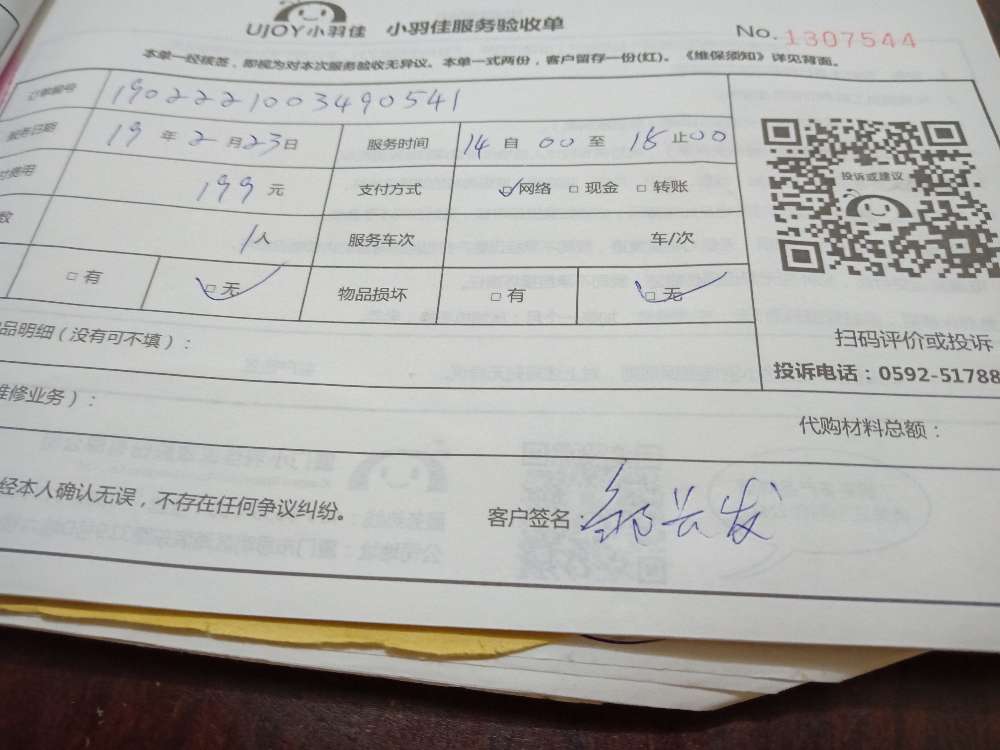 UjOY小羽佳 小羽佳服务验收单 No. 1307544
本单一经核签，即视为对本次服务验收无异议。本单一式两份，客户留存一份(红)。《维保须知》详见背面。
订单编号 1902221003490541
服务日期 19年2月23日 服务时间 14自00至18止00
付费用 199元 支付方式 ☑网络 □现金 □转账
数 1人 服务车次 车/次
□有 ☑无 物品损坏 □有 ☑无
投诉或建议
扫码评价或投诉
投诉电话：0592-51788
品明细（没有可不填）：
维修业务）：
代购材料总额：
经本人确认无误，不存在任何争议纠纷。 客户签名：邹兴发